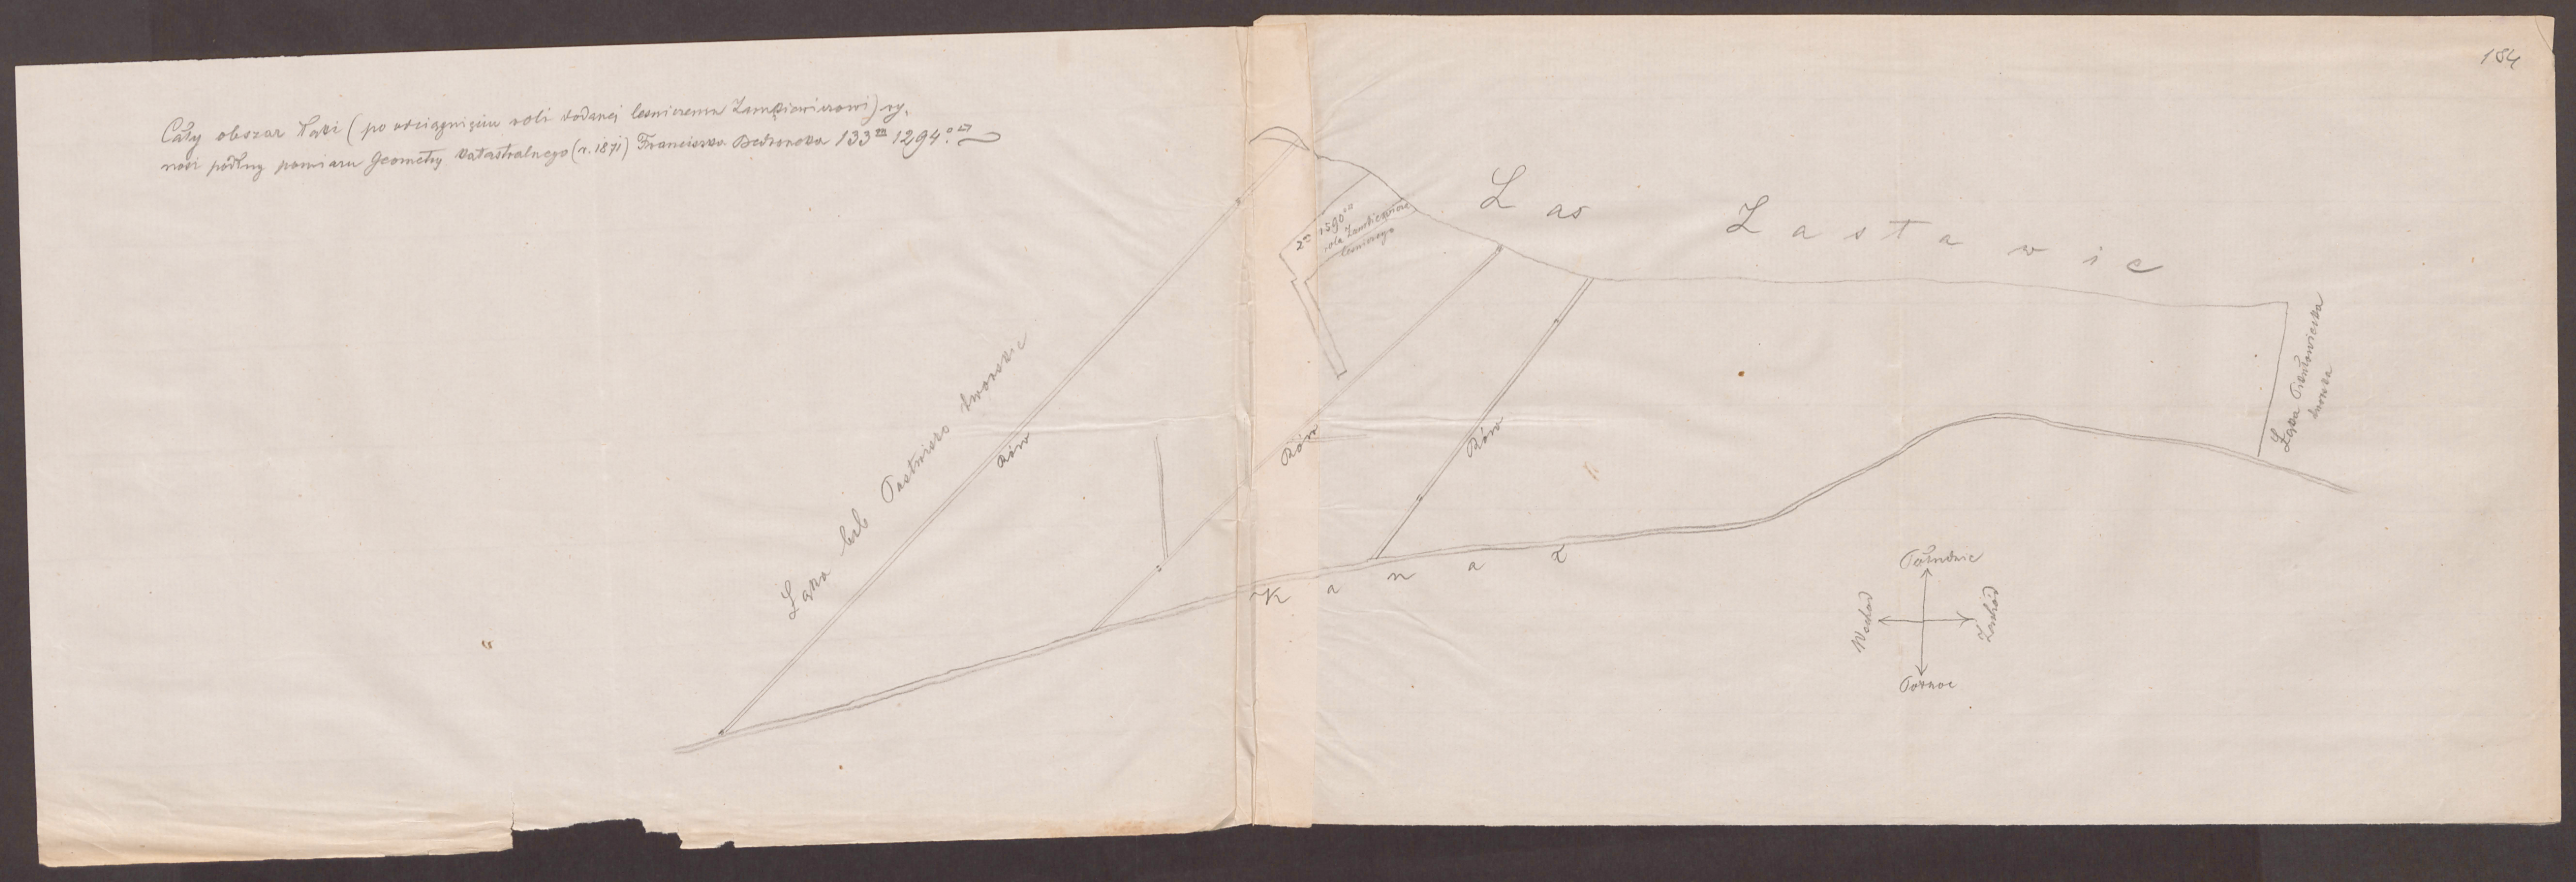 184
Cały obszar łąki (po odciągnięciu roli dodanej leśniczemu Zamkiewiczowi) wy,
nosi podług pomiaru Geometry katastralnego (r. 1871) Franciszka 133 m 1294.
Las Zastawie
2 m 1590
rola Zamkiewicza
leśniczego
Łąka lub Pastwisko dworskie
Rów
Rów
Rów
Łąka
dworska
Kanał
Południe
Wschod
Zachód
Połnoc